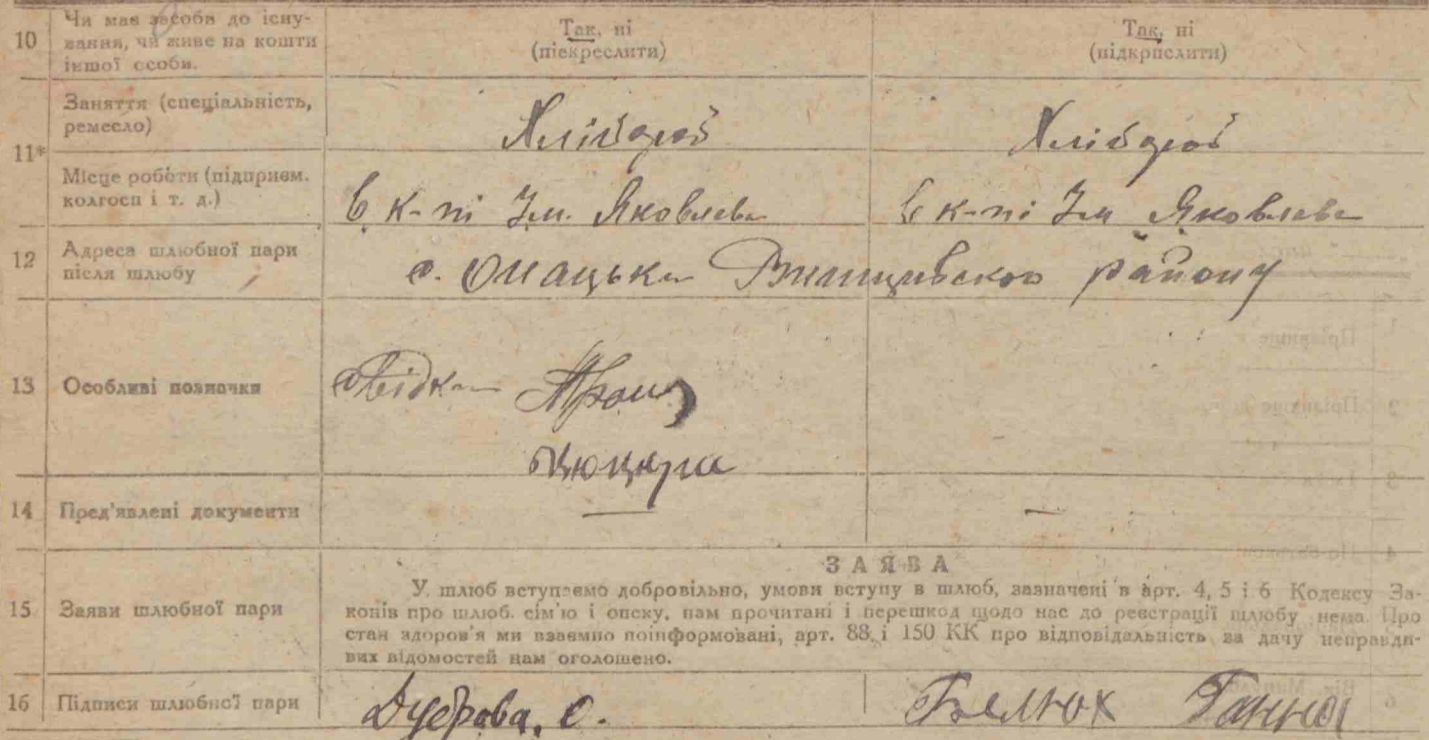 10 Чи має засоби до існу-
вання, чи живе на кошти
іншої особи.
Так, ні
(піекреслити)
Так, ні
(підкрислити)
11*
Заняття (спеціальність,
ремесло)
Хлібороб
Хлібороб
Місце роботи (підприєм.
колгосп і т. д.)
В к-пі Ім. Яковлева
В к-пі Ім Яковлева
12 Адреса шлюбної пари
після шлюбу
с. району
13 Особливі позначки
Свідки
Цюцюра
14 Пред'явлені документи
—
—
15 Заяви шлюбної пари
ЗАЯВА
У шлюб вступаємо добровільно, умови вступу в шлюб, зазначені в арт. 4, 5 і 6 Кодексу За-
конів про шлюб. сім'ю і опску, нам прочитані і перешкод щодо нас до реєстрації шлюбу нема Про
стан здоров'я ми взаємно поінформовані, арт. 88 і 150 КК про відповідальність за дачу неправди-
вих відомостей нам оголошено.
16 Підписи шлюбної пари
Дуброва. С.
Белюх Ганна